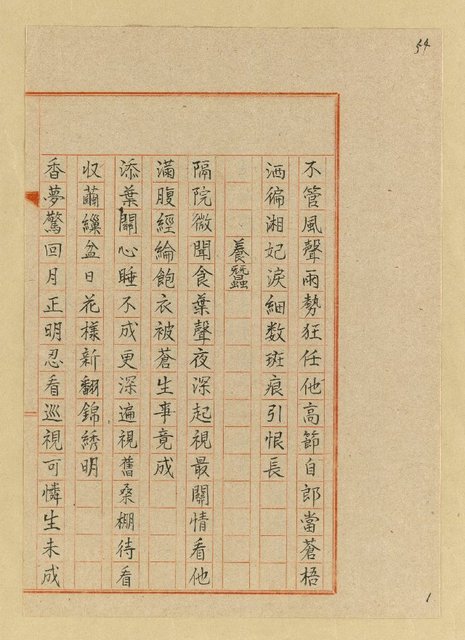 54
不管風聲雨勢狂任他高節自郎當蒼梧
洒徧湘妃淚細数斑痕引恨長
養蠶
隔院微聞食葉聲夜深起視最關情看他
滿腹經綸飽衣被蒼生事竟成
添葉關心睡不成更深遍視舊桑棚待看
収繭繅盆日花樣新翻錦綉明
香夢驚回月正明忍看巡視可憐生未成
1